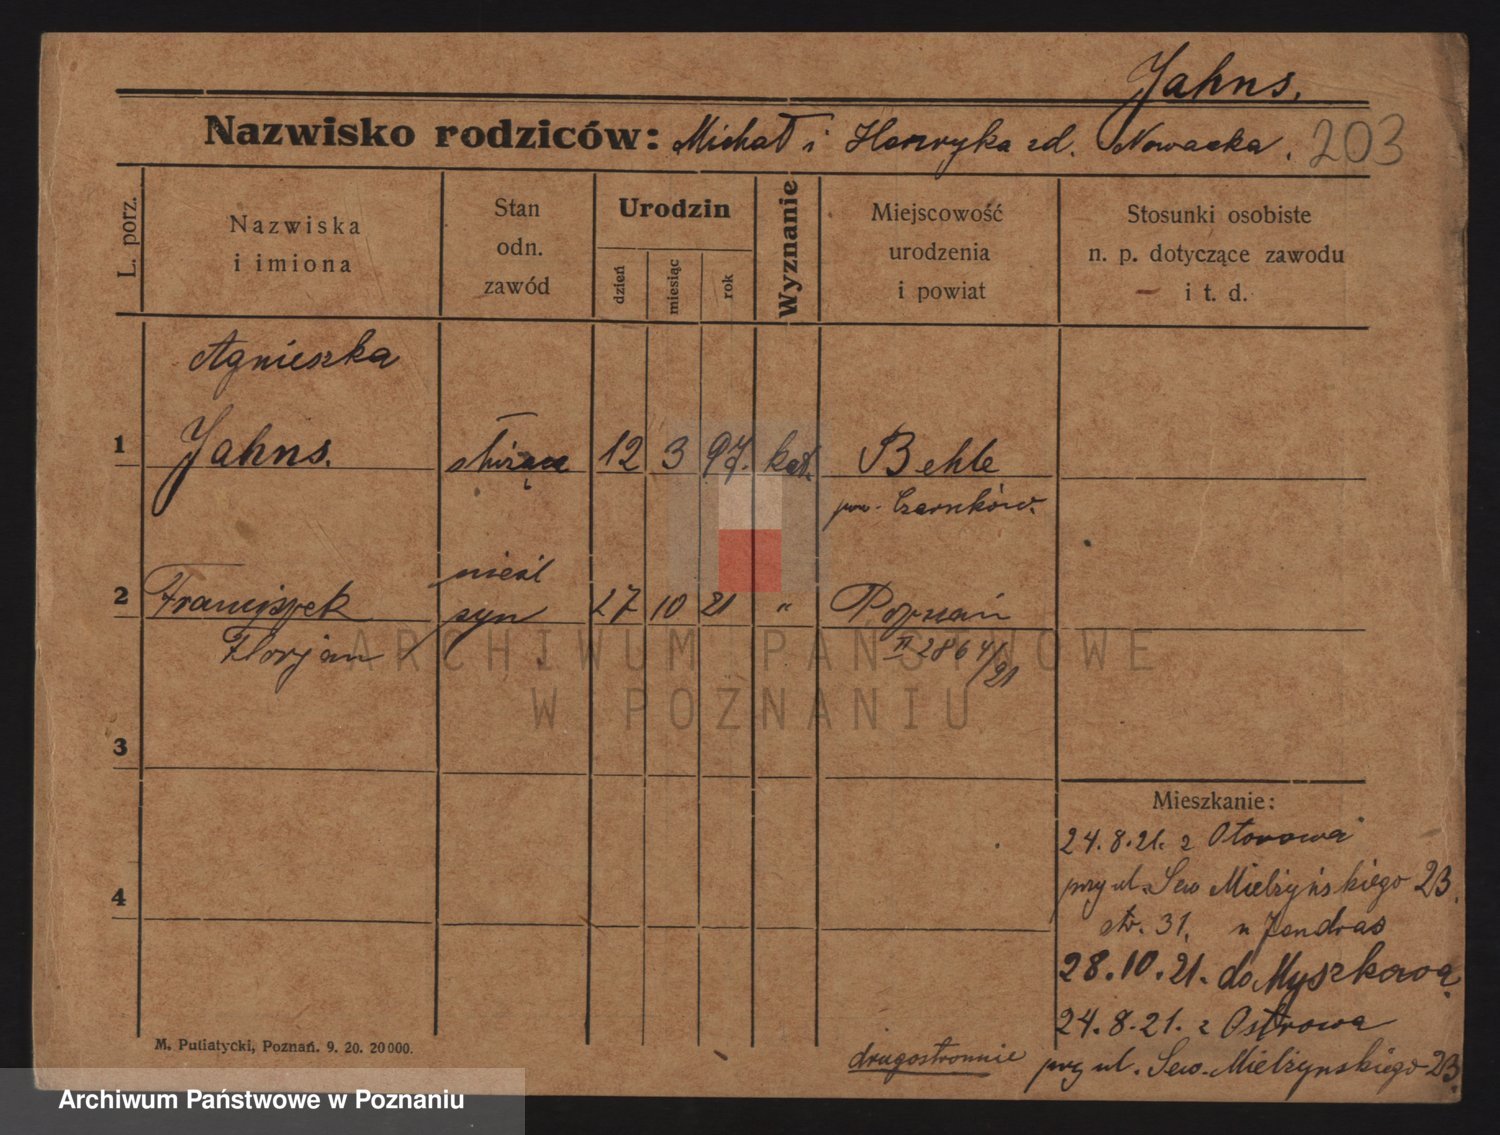 Jahns.
Nazwisko rodziców: Michał i Henryka zd. Nowacka. 203
L. porz.
Nazwiska
i imiona
Stan
odn.
zawód
Urodzin
dzień
miesiąc
rok
Wyznanie
Miejscowość
urodzenia
i powiat
Stosunki osobiste
n. p. dotyczące zawodu
i t. d.
Agnieszka
1 Jahns. służąca 12 3 97. kat. Behle
pow. Czarnków.
nieśl
2 Franciszek syn 27 10 21 " Poznań
Florjan II 2864/21
3
4
Mieszkanie:
24.8.21. z Otorowa
przy ul. Sew Mielżyńskiego 23.
str. 31. u Jendras
28.10.21. do
24.8.21. z Ostrowa
przy ul. Sew. Mielżynskiego 23.
drugostronnie
M. Putiatycki, Poznań. 9. 20. 20000.
ARCHIWUM PAŃSTWOWE
W POZNANIU
Archiwum Państwowe w Poznaniu